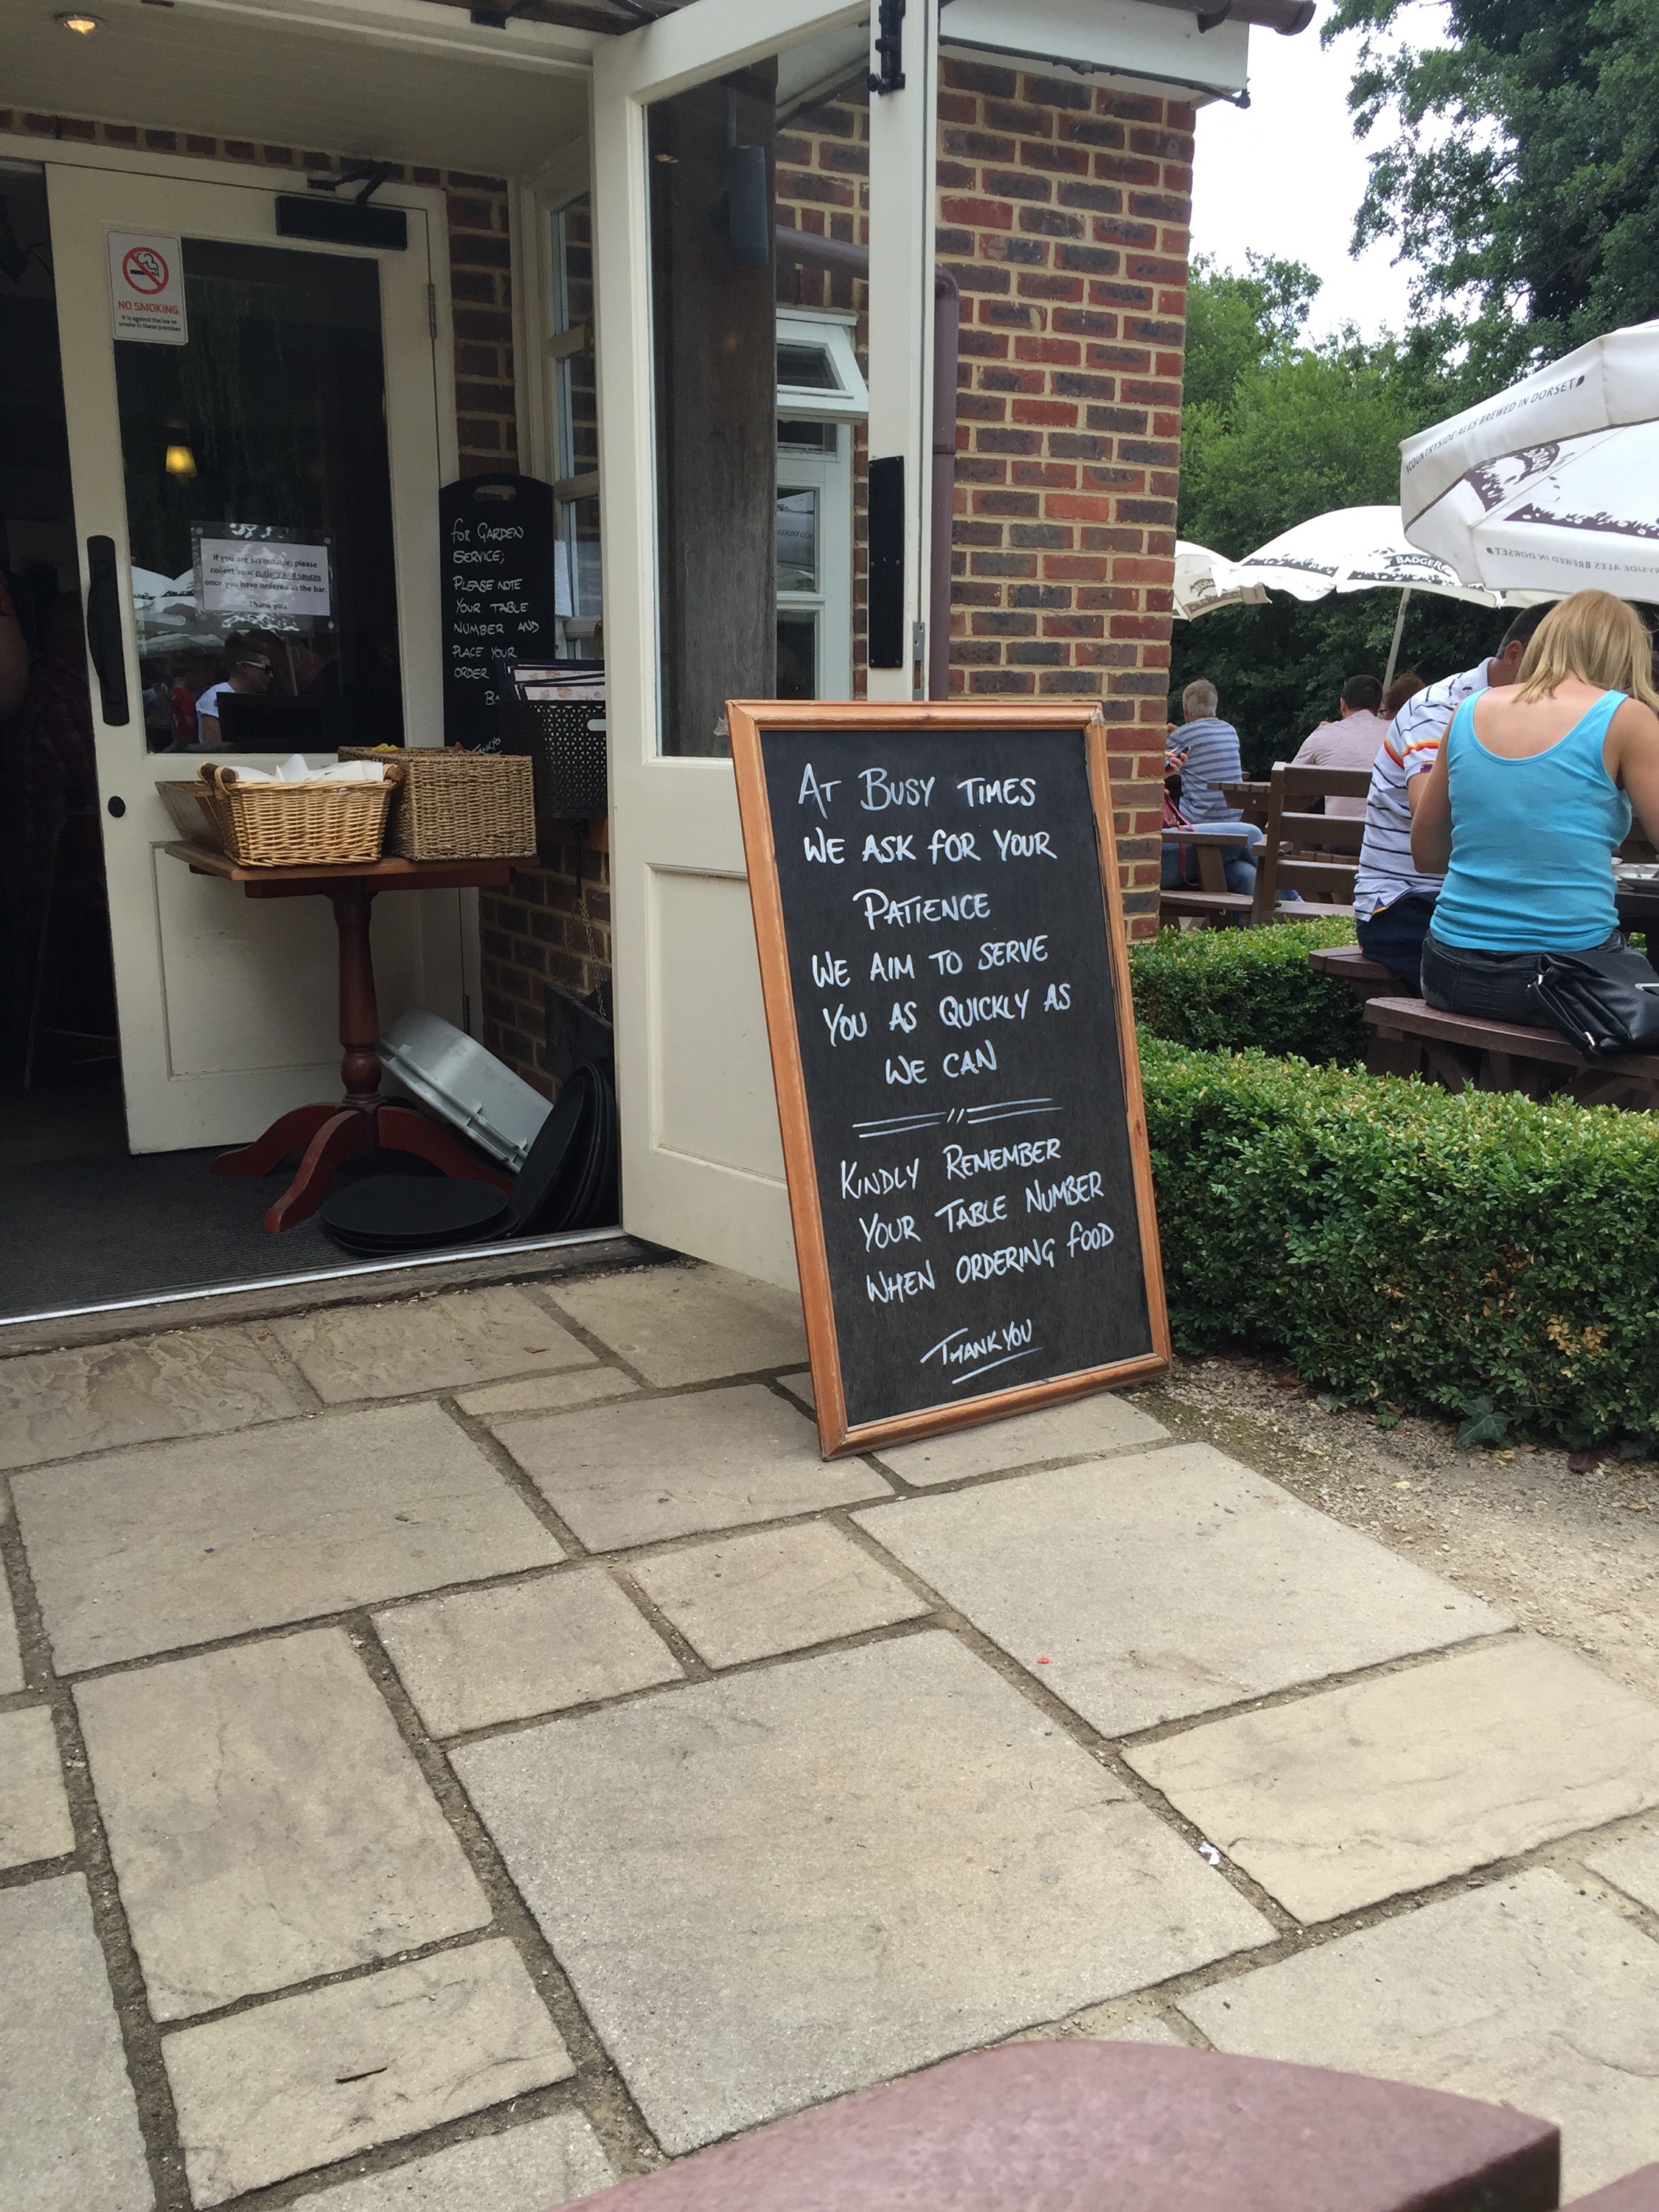 NO SMOKING
It is against the law to
smoke in these premises
If you are sat outside, please
collect your cutlery and sauces
once you have ordered at the bar.
Thank you
FOR GARDEN
SERVICE,
PLEASE NOTE
YOUR TABLE
NUMBER AND
PLACE YOUR
ORDER
AT BUSY TIMES
WE ASK FOR YOUR
PATIENCE
WE AIM TO SERVE
YOU AS QUICKLY AS
WE CAN
KINDLY REMEMBER
YOUR TABLE NUMBER
WHEN ORDERING FOOD
THANK YOU
COUNTRYSIDE ALES BREWED IN DORSET
BADGER
RYSIDE ALES BREWED IN DORSET